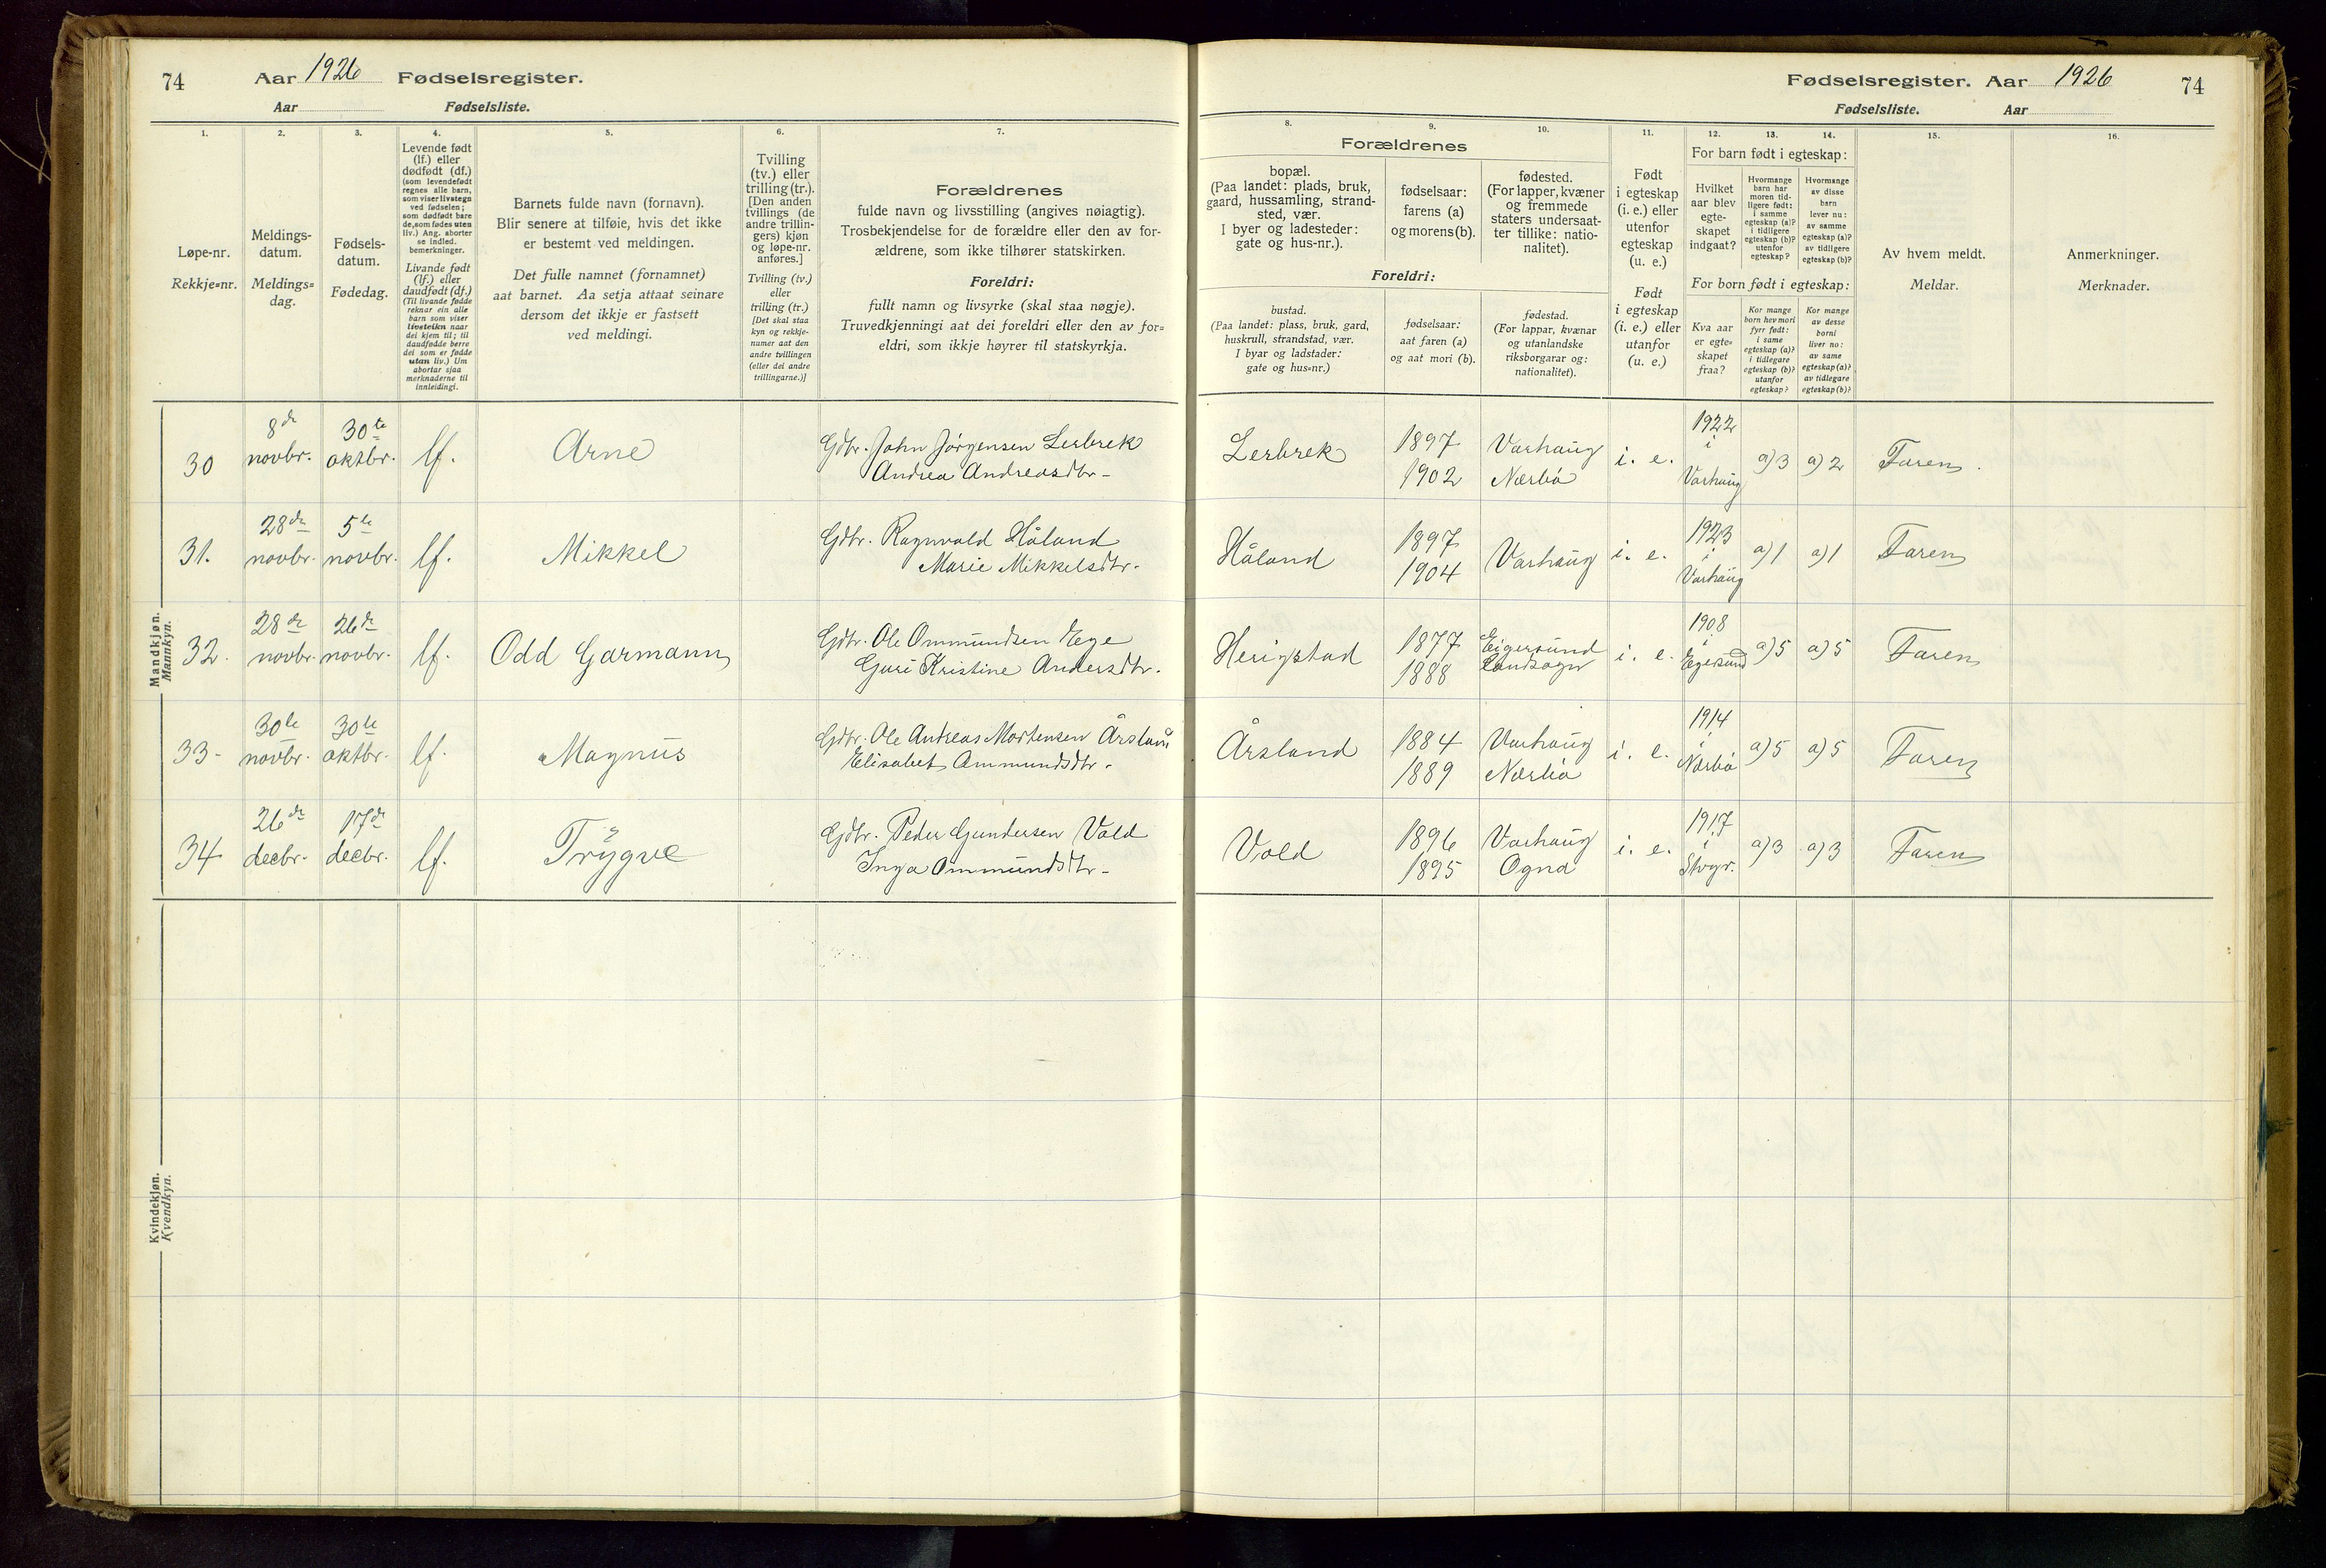 74 Aar 1926 Fødselsregister.
Aar Fødselsliste.
Fødselsregister. Aar 1926 74
Fødselsliste. Aar
1. 2. 3. 4. 5. 6. 7.
Løpe-nr.
Rekkje=nr.
Meldings-
datum.
Meldings=
dag.
Fødsels-
datum.
Fødedag.
Levende født
(lf.) eller
dødfødt (df.)
(som levendefødt
regnes alle barn,
som viser livstegn
ved fødselen;
som dødfødt bare
de, som fødes uten
liv.) Ang. aborter
se indled.
bemerkninger.
Livande født
(lf.) eller
daudfødt (df.)
(Til livande fødde
reknar ein alle
barn som viser
livsteikn naar
dei kjem til; til
daudfødde berre
dei som er fødde
utan liv.) Um
abortar sjaa
merknaderne til
innleidingi.
Barnets fulde navn (fornavn).
Blir senere at tilføie, hvis det ikke
er bestemt ved meldingen.
Det fulle namnet (fornamnet)
aat barnet. Aa setja attaat seinare
dersom det ikkje er fastsett
ved meldingi.
Tvilling
(tv.) eller
trilling (tr.).
[Den anden
tvillings (de
andre trillin-
gers) kjøn
og løpe-nr.
anføres.]
Tvilling (tv.)
eller
trilling (tr.)
[Det skal staa
kyn og rekkje-
numer aat den
andre tvillingen
(eller dei andre
trillingarne.)]
Forældrenes
fulde navn og livsstilling (angives nøiagtig).
Trosbekjendelse for de forældre eller den av for-
ældrene, som ikke tilhører statskirken.
Foreldri:
fullt namn og livsyrke (skal staa nøgje).
Truvedkjenningi aat dei foreldri eller den av for=
eldri, som ikkje høyrer til statskyrkja.
8. 9. 10. 11. 12. 13. 14. 15. 16.
Forældrenes
bopæl.
(Paa landet: plads, bruk,
gaard, hussamling, strand-
sted, vær.
I byer og ladesteder:
gate og hus-nr.).
fødselsaar:
farens (a)
og morens (b).
fødested.
(For lapper, kvæner
og fremmede
staters undersaat-
ter tillike: natio-
nalitet).
Foreldri:
bustad.
(Paa landet: plass, bruk, gard,
huskrull, strandstad, vær.
I byar og ladstader:
gate og hus=nr.)
fødselsaar:
aat faren (a)
og aat mori (b).
fødestad.
(For lappar, kvænar
og utanlandske
riksborgarar og:
nationalitet).
Født
i egteskap
(i. e.) eller
utenfor
egteskap
(u. e.)
Født
i egteskap
(i. e.) eller
utanfor
(u. e.)
For barn født i egteskap:
Hvilket
aar blev
egte-
skapet
indgaat?
Hvormange
barn har
moren tid-
ligere født:
i samme
egteskap (a)?
i tidligere
egteskap (b)?
utenfor
egteskap?
Hvormange
av disse
barn
lever nu:
av samme
egteskap (a)?
av tidligere
egteskap (b)?
For born født i egteskap:
Kva aar
er egte=
skapet
fraa?
Kor mange
born hev mori
fyrr født:
i same
egteskap (a)?
i tidlegare
egteskap (b)?
utanfor
egteskap?
Kor mange
av desse
borni
liver no:
av same
egteskap (a)?
av tidlegare
egteskap (b)?
Av hvem meldt.
Meldar.
Anmerkninger.
Merknader.
Mandkjøn.
Mannkyn.
30 8de novbr. 30te oktbr. lf. Arne Gdbr. John Jørgensen Lerbrek
Andrea Andreasdtr.
Lerbrek 1897 1902 Varhaug Nærbø i. e. 1922 i Varhaug a)3 a)2 Faren.
31. 28de novbr. 5te novbr. lf. Mikkel Gdbr. Ragnvald Håland
Marie Mikkelsdtr.
Håland 1897 1904 Varhaug i. e. 1923 i Varhaug a)1 a)1 Faren
32. 28de novbr. 26de novbr. lf. Odd Garmann Gdbr. Ole Ommundsen Ege
Guri Kristine Andersdtr.
Herigstad 1877 1888 Eigersund Landsogn i. e. 1908 i Egersund a)5 a)5 Faren
33 30te novbr. 30te oktbr. lf. Magnus Gdbr. Ole Andreas Mortensen Årsland
Elisabet Ammundsdtr.
Årsland 1884 1889 Varhaug Nærbø i. e. 1914 i Nærbø a)5 a)5 Faren
34 26de decbr. 17de decbr. lf. Trygve Gdbr. Peder Gundersen Vold
Inga Ommundsdtr.
Vold 1896 1895 Varhaug Ogna i. e. 1917 i Stvgr. a)3 a)3 Faren
Kvindekjøn.
Kvendkyn.